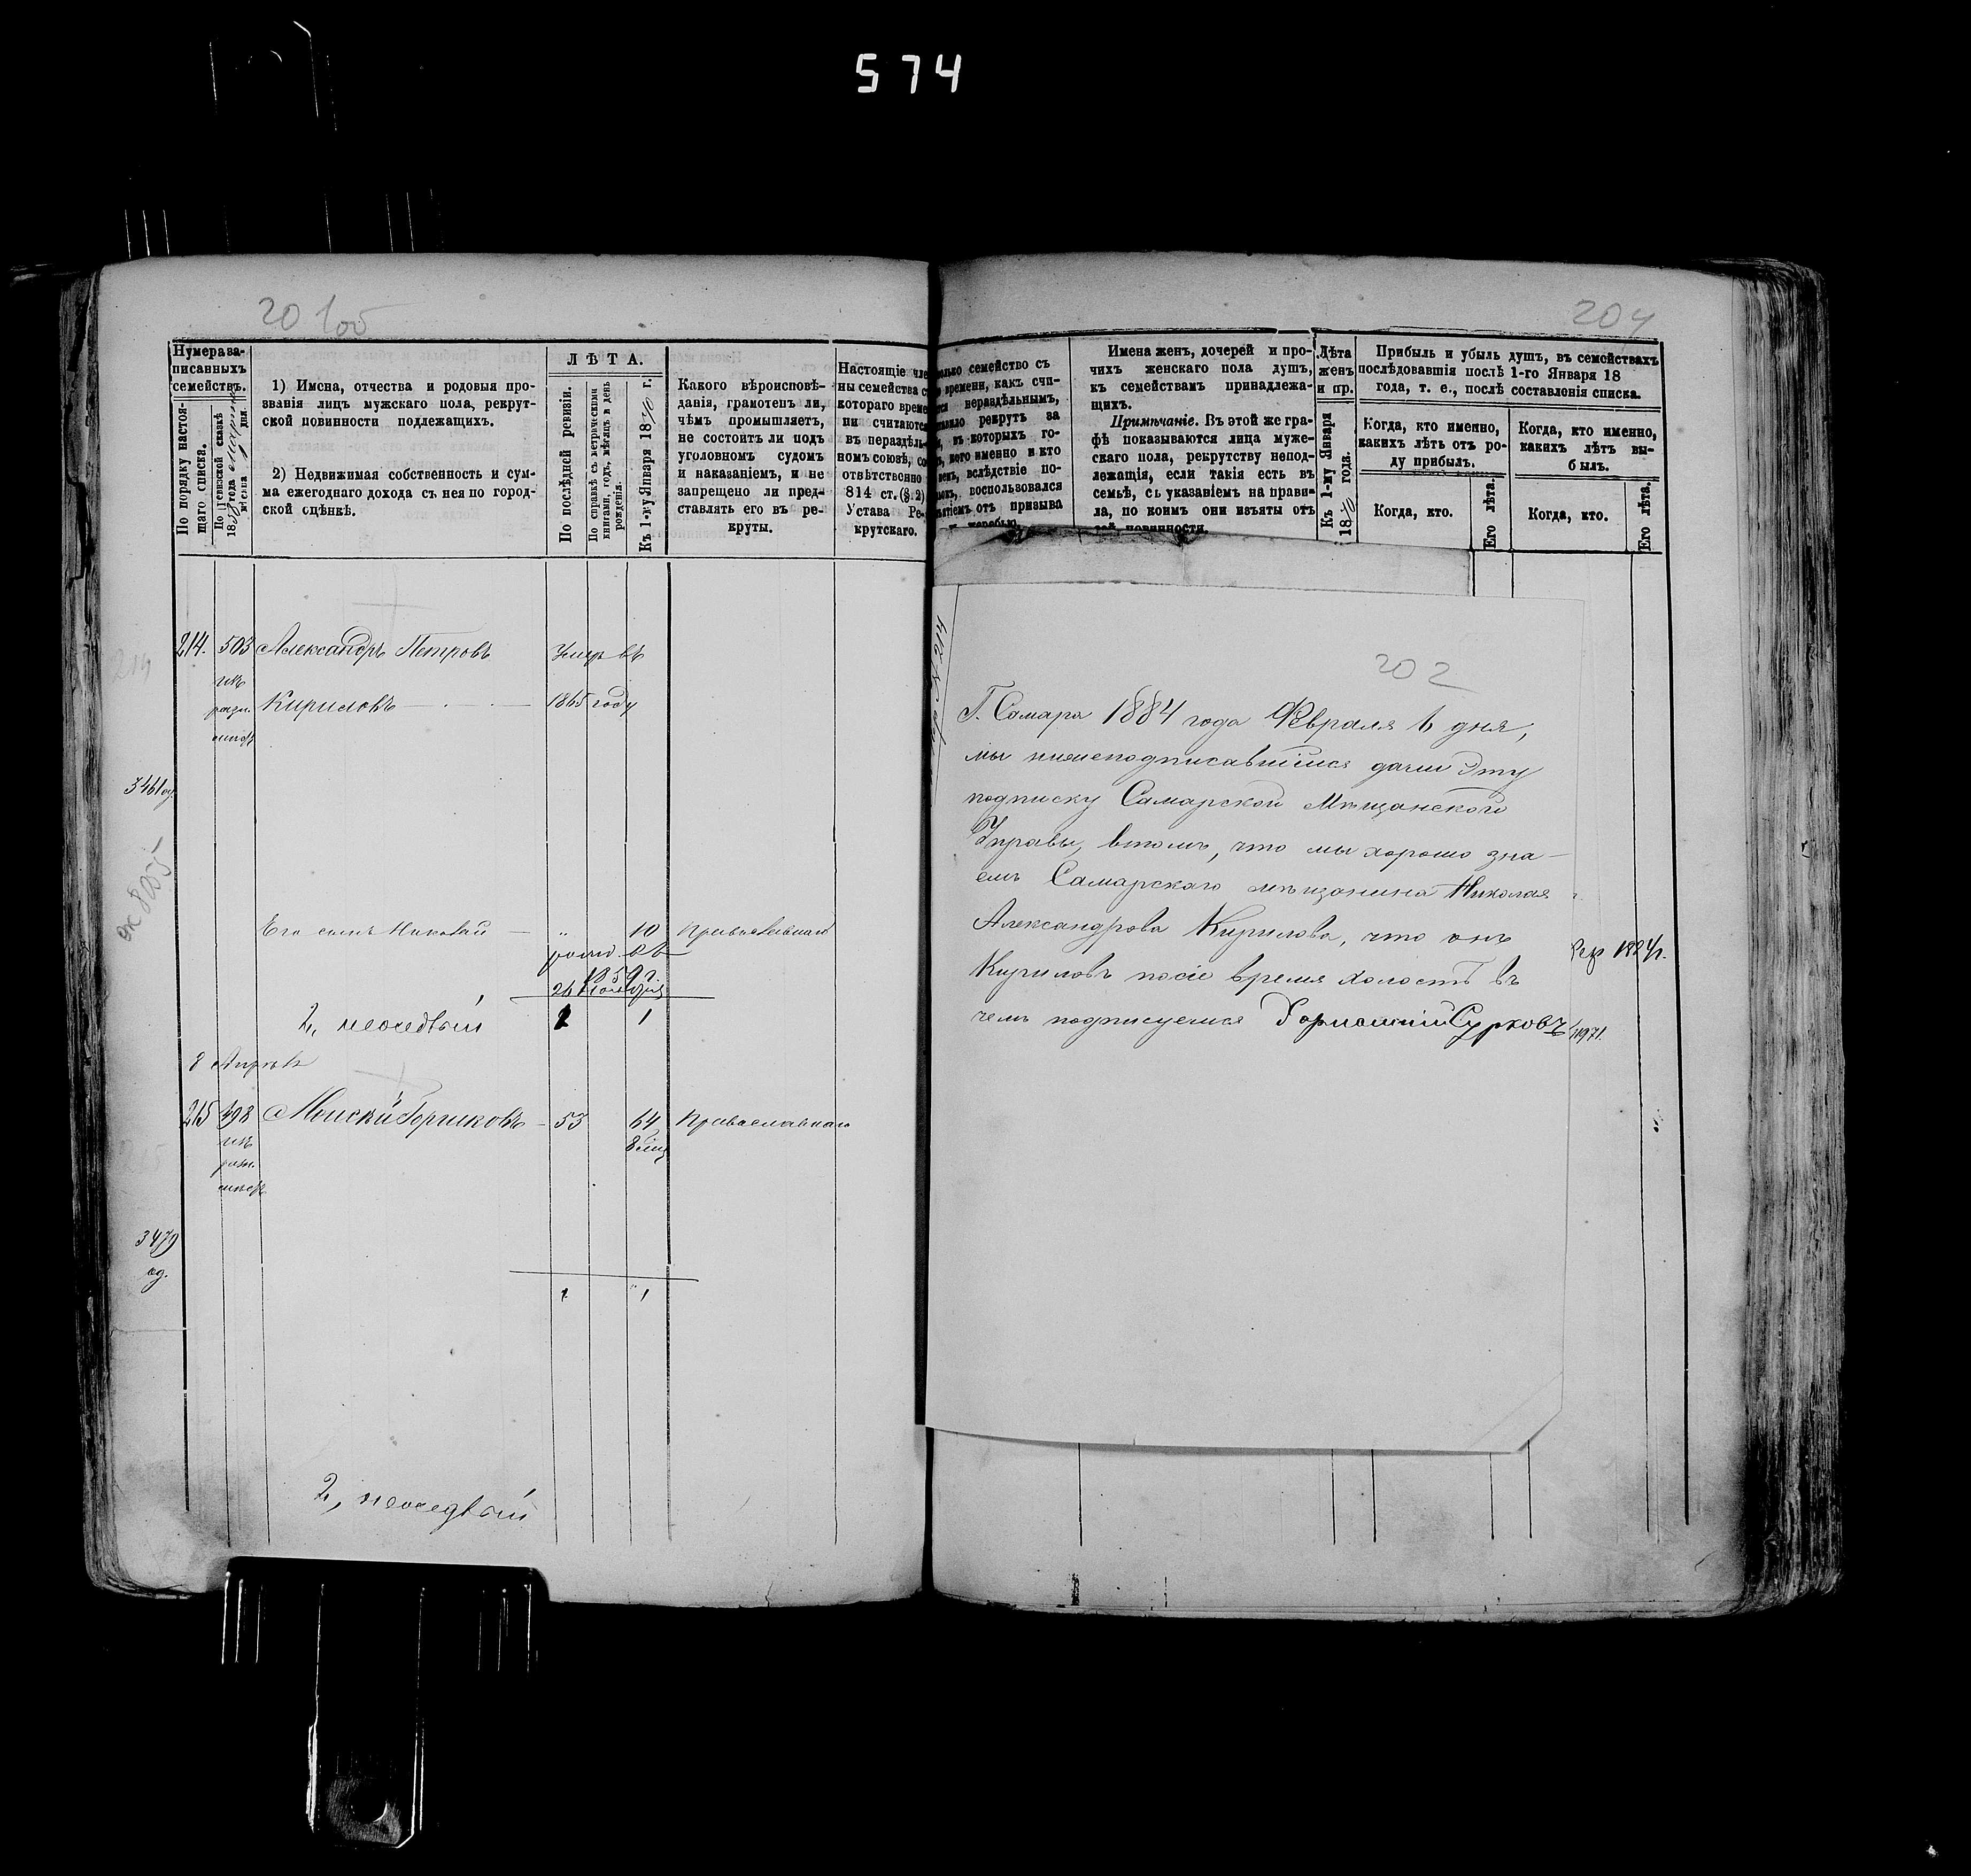 574
20
204
Нумера за-
писанныхъ
семействъ.
По порядку настоя-
щаго списка.
По ревизской сказкѣ
18 года
мѣсяца 1 дня.
1) Имена, отчества и родовыя про-
званія лицъ мужскаго пола, рекрут-
ской повинности подлежащихъ.
2) Недвижимая собственность и сум-
ма ежегоднаго дохода съ нея по город-
ской оцѣнкѣ.
ЛѢТА.
По послѣдней ревизіи.
По справкѣ съ метрическими
книгами, годъ, мѣсяцъ и день
рожденія.
Къ 1-му Января 1870 г.
Какого вѣроисповѣ-
данія, грамотенъ ли,
чѣмъ промышляетъ,
не состоитъ ли подъ
уголовномъ судомъ
и наказаніемъ, и не
запрещено ли пред-
ставлять его въ ре-
круты.
Настоящіе чле
ны семейства с
котораго време
ни считаются
въ нераздѣль
номъ союзѣ, со
отвѣтственно
814 ст. (§ 2)
Устава Ре-
крутскаго.
семейство съ
времени, какъ счи-
нераздѣльнымъ,
рекрутъ за
въ которыхъ го-
кого именно и кто
вслѣдствіе по-
воспользовался
отъ призыва
жеребью
Имена женъ, дочерей и про-
чихъ женскаго пола душъ,
къ семействамъ принадлежа-
щихъ.
Примѣчаніе. Въ этой же гра-
фѣ показываются лица муже-
скаго пола, рекрутству непод-
лежащія, если такія есть въ
семьѣ, съ указаніемъ на прави-
ла, по коимъ они изъяты отъ
сей повинности.
Лѣта
женъ
и пр.
Къ 1-му Января
1870 года.
Прибыль и убыль душъ, въ семействахъ
послѣдовавшія послѣ 1-го Января 18
года, т. е., послѣ составленія списка.
Когда, кто именно,
какихъ лѣтъ отъ ро-
ду прибылъ.
Когда, кто именно,
какихъ лѣтъ вы-
былъ.
Когда, кто.
Его лѣта.
Когда, кто.
Его лѣта.
214. 503 Александръ Петровъ Умеръ въ
Кириловъ 1865 году
Его сынъ Николай " 10 Православнаго
рожд. въ
1859 г.
26 Ноября
1 1
215 498 Горшковъ 53 64 Православнаго
3479
1 1
202
Г. Самара 1884 года Февраля 6 дня,
мы нижеподписавшіися дали эту
подписку Самарской Мѣщанской
Управы, втомъ, что мы хорошо зна-
емъ Самарскаго мѣщанина Николая
Александрова Кирилова, что онъ
Кириловъ посіе время холостъ въ
чемъ подписуемся Сурковъ
1884 г.